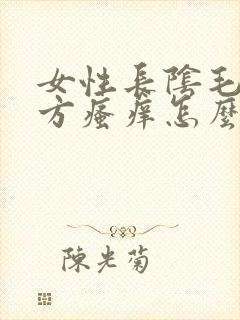 女性長陰毛
方瘙癢怎麼
陳光菊